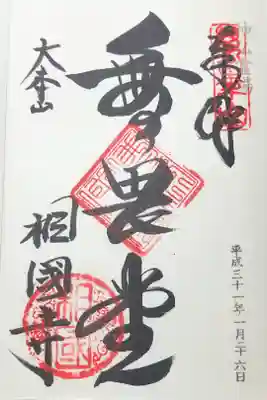 奉拝
平成三十一年一月二十六日
無畏堂
大本山
相國寺